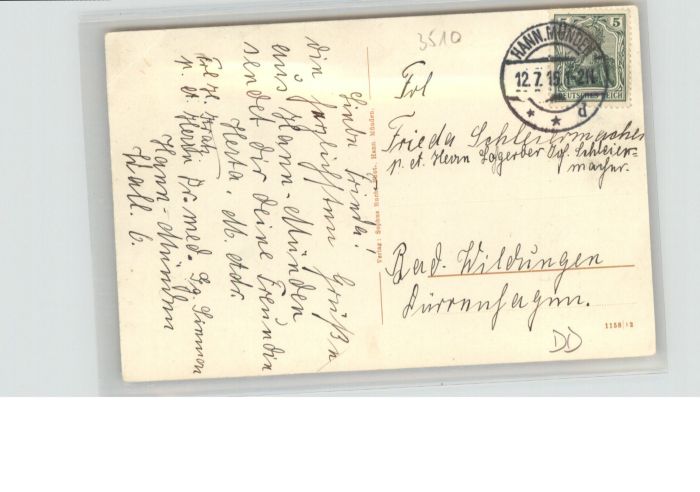 3510
HANN. MÜNDEN
12.7.15. 1-2N
d
5 5
DEUTSCHES REICH
Liebe Frieda!
Die herzlichsten Grüße
aus Hann.-Münden
sendet dir deine Freundin
Herta. M. Adr.
p. A. Herrn Dr. med.
Hann-Münden
Wall 6.
Verlag: Hann. Münden.
Frl
Frieda Schleiermacher
p. A. Herrn Schleier-
macher.
Bad-Wildungen
Dürrenhagen.
1158 12
DD